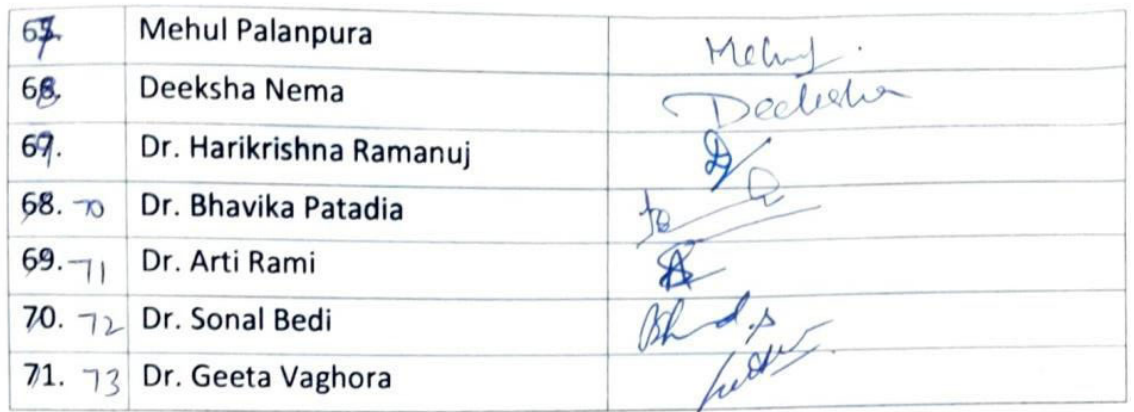 67. Mehul Palanpura Mehul.
68. Deeksha Nema Deeksha
69. Dr. Harikrishna Ramanuj
68. 70 Dr. Bhavika Patadia
69. 71 Dr. Arti Rami
70. 72 Dr. Sonal Bedi
71. 73 Dr. Geeta Vaghora